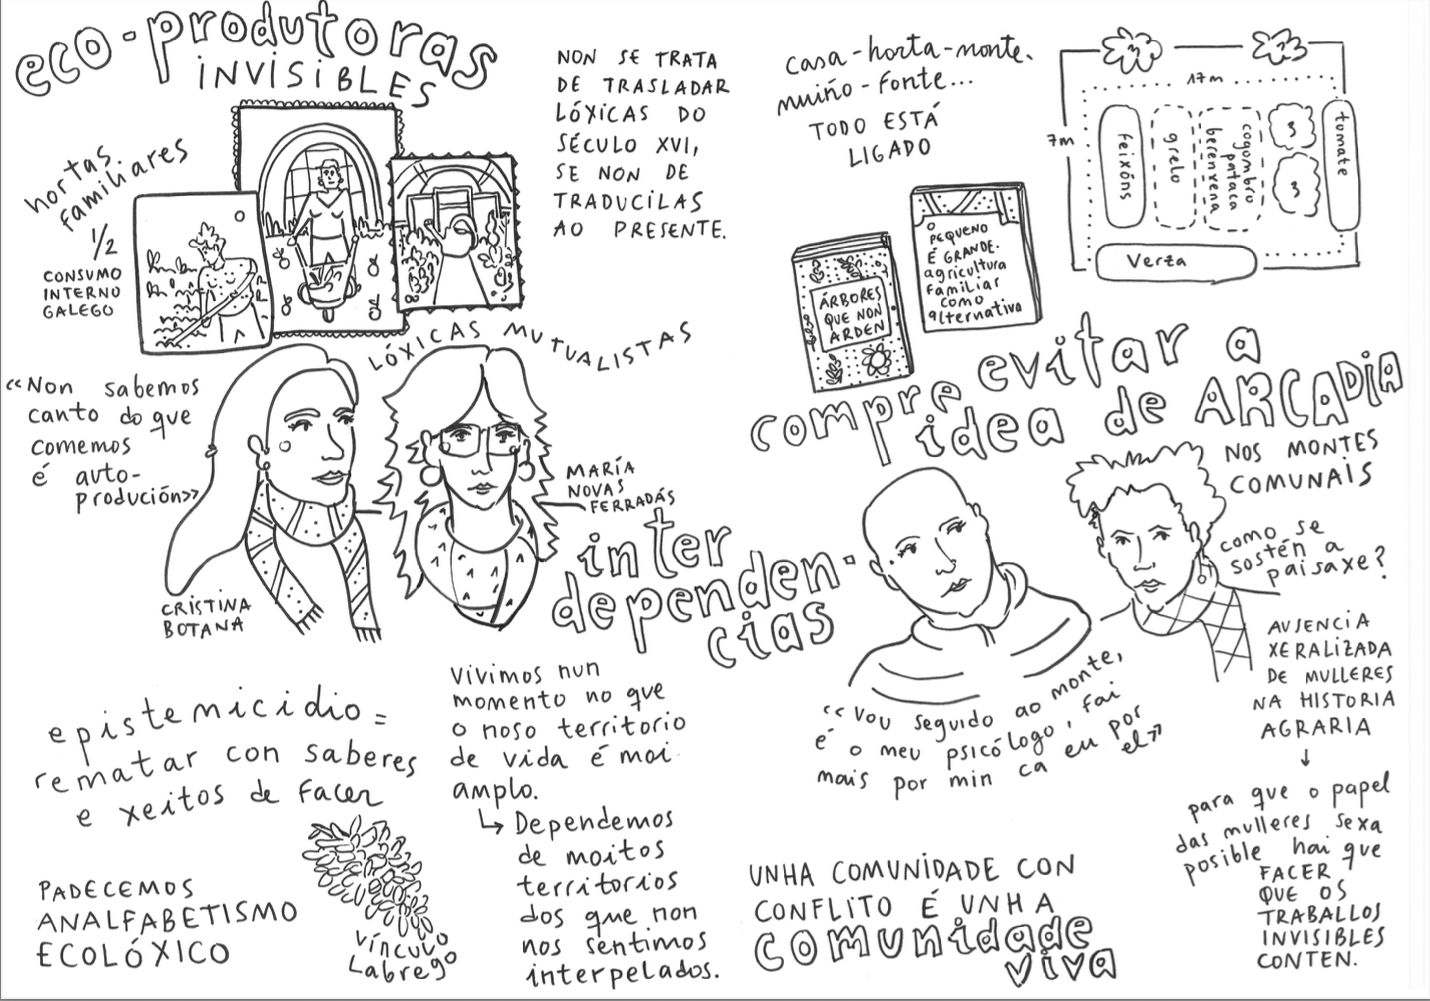 eco-produtoras
INVISIBLES
hortas
familiares
1/2
CONSUMO
INTERNO
GALEGO
NON SE TRATA
DE TRASLADAR
LÓXICAS DO
SÉCULO XVI,
SE NON DE
TRADUCILAS
AO PRESENTE.
LÓXICAS MUTUALISTAS
«Non sabemos
canto do que
comemos
é auto-
produción»
CRISTINA
BOTANA
MARÍA
NOVAS
FERRADÁS
inter
dependen-
cias
epistemicidio =
rematar con saberes
e xeitos de facer
PADECEMOS
ANALFABETISMO
ECOLÓXICO
Vínculo
Labrego
Vivimos nun
momento no que
o noso territorio
de vida é moi
amplo.
↳ Dependemos
de moitos
territorios
dos que non
nos sentimos
interpelados.
casa-horta-monte.
muiño-fonte...
TODO ESTÁ
LIGADO
17m
7m
feixóns
grelo
cogombro
pataca
berenxena
3
3
tomate
Verza
ÁRBORES
QUE NON
ARDEN
O
PEQUENO
É GRANDE.
agricultura
familiar
como
alternativa
compre evitar a
idea de ARCADIA
NOS MONTES
COMUNAIS
como se
sostén a
paisaxe?
«Vou seguido ao monte,
é o meu psicólogo, fai
mais por min ca eu por
el»
AUSENCIA
XERALIZADA
DE MULLERES
NA HISTORIA
AGRARIA
↓
para que o papel
das mulleres sexa
posible hai que
FACER
QUE OS
TRABALLOS
INVISIBLES
CONTEN.
UNHA COMUNIDADE CON
CONFLITO É UNHA
comunidade
viva